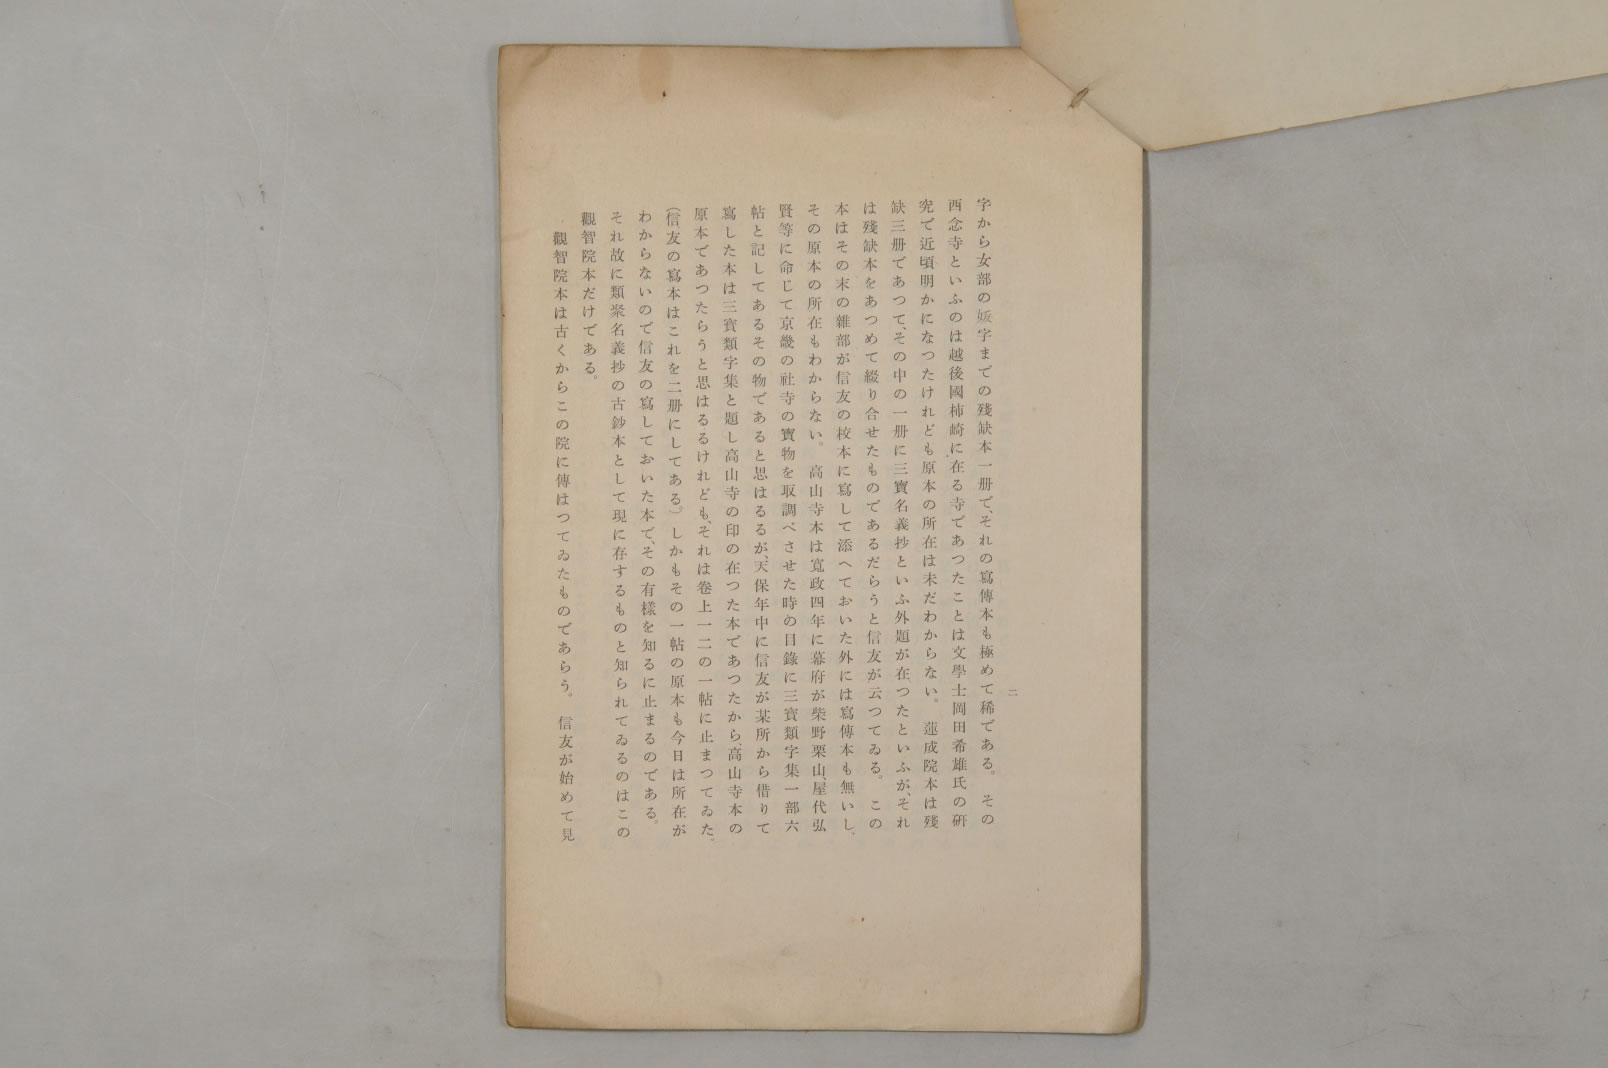 二
字から女部の媛字までの殘缺本一册で、それの寫傳本も極めて稀である。その
西念寺といふのは越後國柿崎に在る寺であつたことは文學士岡田希雄氏の硏
究で近頃明かになつたけれども原本の所在は未だわからない。蓮成院本は殘
缺三册であつて、その中の一册に三寶名義抄といふ外題が在つたといふが、それ
は殘缺本をあつめて綴り合せたものであるだらうと信友が云つてゐる。この
本はその末の雜部が信友の校本に寫して添へておいた外には寫傳本も無いし、
その原本の所在もわからない。高山寺本は寬政四年に幕府が柴野栗山、屋代弘
賢等に命じて京畿の社寺の寶物を取調べさせた時の目錄に三寶類字集一部六
帖と記してあるその物であると思はるるが、天保年中に信友が某所から借りて
寫した本は三寶類字集と題し高山寺の印の在つた本であつたから高山寺本の
原本であつたらうと思はるるけれども、それは卷上一二の一帖に止まつてゐた。
(信友の寫本はこれを二册にしてある。)しかもその一帖の原本も今日は所在が
わからないので信友の寫しておいた本で、その有樣を知るに止まるのである。
それ故に類聚名義抄の古鈔本として現に存するものと知られてゐるのはこの
觀智院本だけである。
觀智院本は古くからこの院に傳はつてゐたものであらう。信友が始めて見